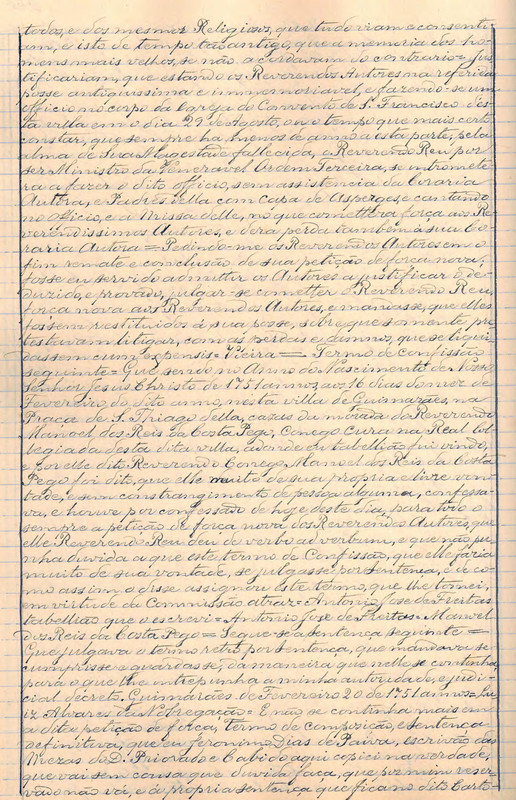 todos, e dos mesmos Religiosos, que tudo viam e consenti-
am, e isto de tempo tão antigo, que a memoria dos ho-
mens mais velhos, se não acordavam do contrario = Jus-
tificariam, que estando os Reverendos Autores na referida
posse antiquissima e immemoriavel, e fazendo-se um
officio no corpo da Egreja do Convento de S. Francisco des-
ta villa em o dia 29 de Agosto, ou o tempo que mais certo
constar, que sempre ha menos de anno a esta parte, pela
alma de Sua Magestade fallecida, o Reverendo Reu por
ser Ministro da Veneravel Ordem Terceira, se intromete-
ra a fazer o dito officio, sem assistencia da Coraria
Autora, e Padres della com capa de Asperges, e cantando
no Officio, e a Missa delle, no que comettera força aos Re-
verendissimos Autores, e dera perda tambem á sua Co-
raria Autora = Pedindo-me os Reverendos Autores em o
fim remate e conclusão de sua petição de força nova,
fosse eu servido admittir os Autores a justificar o de-
duzido, e provado, julgar-se cometter o Reverendo Reu,
força nova aos Reverendos Autores, e mandasse, que elles
fossem restituidos á sua posse, sobre que somente pro-
testavam litigar, com as perdas e damnos, que se liqui-
dassem cum expensis = Vieira = Termo de confissão
seguinte = Que sendo no Anno do Nascimento de Nosso
Senhor Jesus Christo de 1751 annos, aos 16 dias do mez de
Fevereiro, do dito anno, nesta villa de Guimarães, na
Praça de S. Thiago della, cazas da morada do Reverendo
Manoel dos Reis da Costa Pego, Conego Cura na Real Col-
legiada desta dita villa, adonde eu tabellião fui vindo,
e por elle dito Reverendo Conego Manoel dos Reis da Costa
Pego foi dito, que elle muito de sua propria e livre von-
tade, e sem constrangimento de pessoa alguma, confessa-
va, e houve por confessado de hoje, deste dia, para todo o
sempre a petição de força nova dos Reverendos Autores, que
elle Reverendo Reu deu de verbo ad verbum, e que não pu-
nha duvida a que este termo de Confissão, que elle faria
muito de sua vontade, se julgasse por sentença, e de co-
mo assim o disse assignou este termo, que lhe tomei,
em virtude da Commissão atraz = Antonio Jose de Freitas
tabellião que o escrevi = Antonio Jose de Freitas = Manoel
dos Reis da Costa Pego = Segue-se a sentença seguinte =
Que julgava o termo retro por sentença, que mandava se
cumprisse e guardasse, da maneira que nelle se continha,
para o que lhe interpunha a minha autoridade, e judi-
cial decreto. Guimarães de Fevereiro 20 de 1751 annos = Lu-
iz Alvares da Nobregação = E não se continha mais em
a dita petição de força, termo de composição, e sentença
definitiva, que eu Jeronimo Dias de Paiva, escrivão das
Mezas do D. Priorado e Cabido aqui copiei na verdade,
que vai sem cousa que duvida faça, que por mim reser-
vado não vá, e á propria sentença que fica no dito Carto-